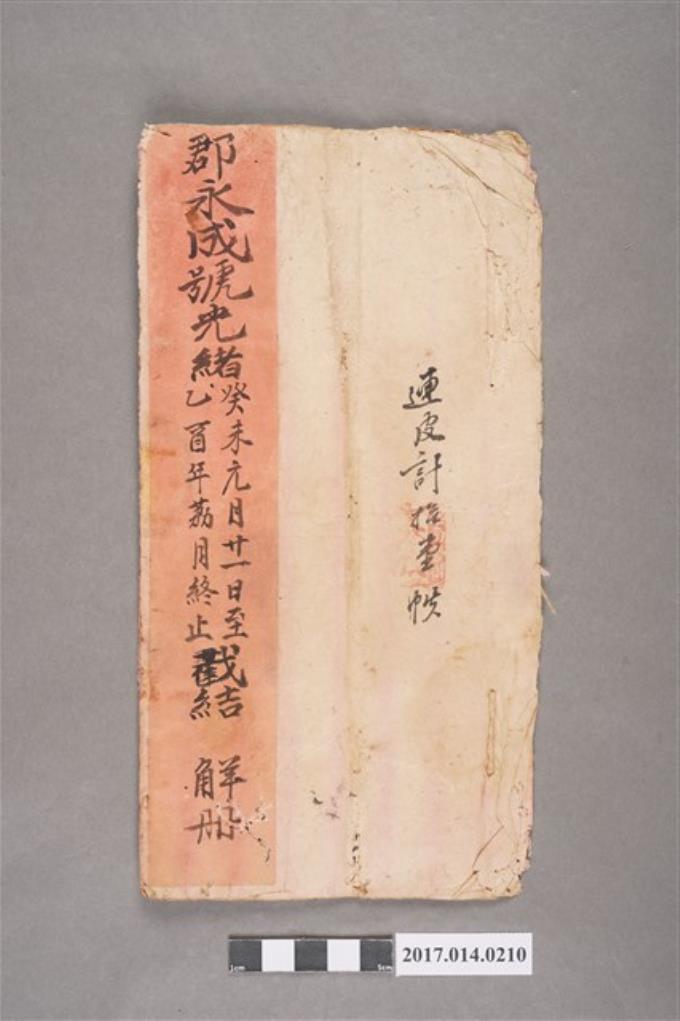 連皮計拾壹帙
郡永成號光緒癸未元月廿一日至
乙酉年荔月終止截結
1cm
5cm
2017.014.0210